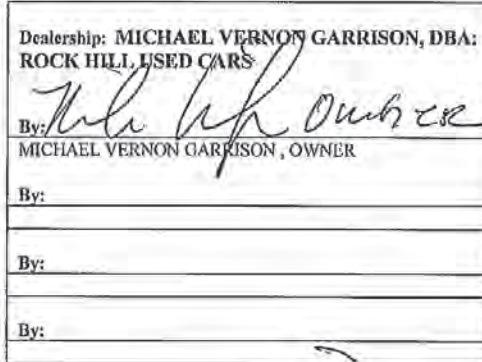 Dealership: MICHAEL VERNON GARRISON, DBA:
ROCK HILL USED CARS
By: Owner
MICHAEL VERNON GARRISON , OWNER
By:
By:
By: